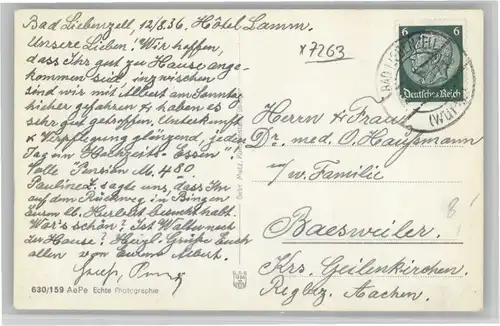 Bad Liebenzell, 12/8.36. Hôtel Lamm.
Unsere Lieben! Wir hoffen,
dass Ihr gut zu Hause ange-
kommen seid, inzwischen
sind wir mit Albert am Sonntag
hierher gefahren & haben es
sehr gut getroffen. Unterkunft
& Verpflegung glänzend, jeden
Tag ein Hochzeits-Essen!
Volle Pension M. 4.80.
sagte uns, dass Ihr
auf dem Rückweg in Bingen
Euern lb. Herbert besucht habt.
War's schön? Ist Walter noch
zu Hause? Herzl. Grüße Euch
allen von Euerm Albert.
630/159 AePe Echte Photographie
x 7263
6 6
Deutsches Reich
BAD LIEBENZELL
(WÜRTT)
Herrn & Frau
Dr. med. O. Haußmann
n/w. Familie
Baesweiler
Krs. Geilenkirchen.
Regbez. Aachen.